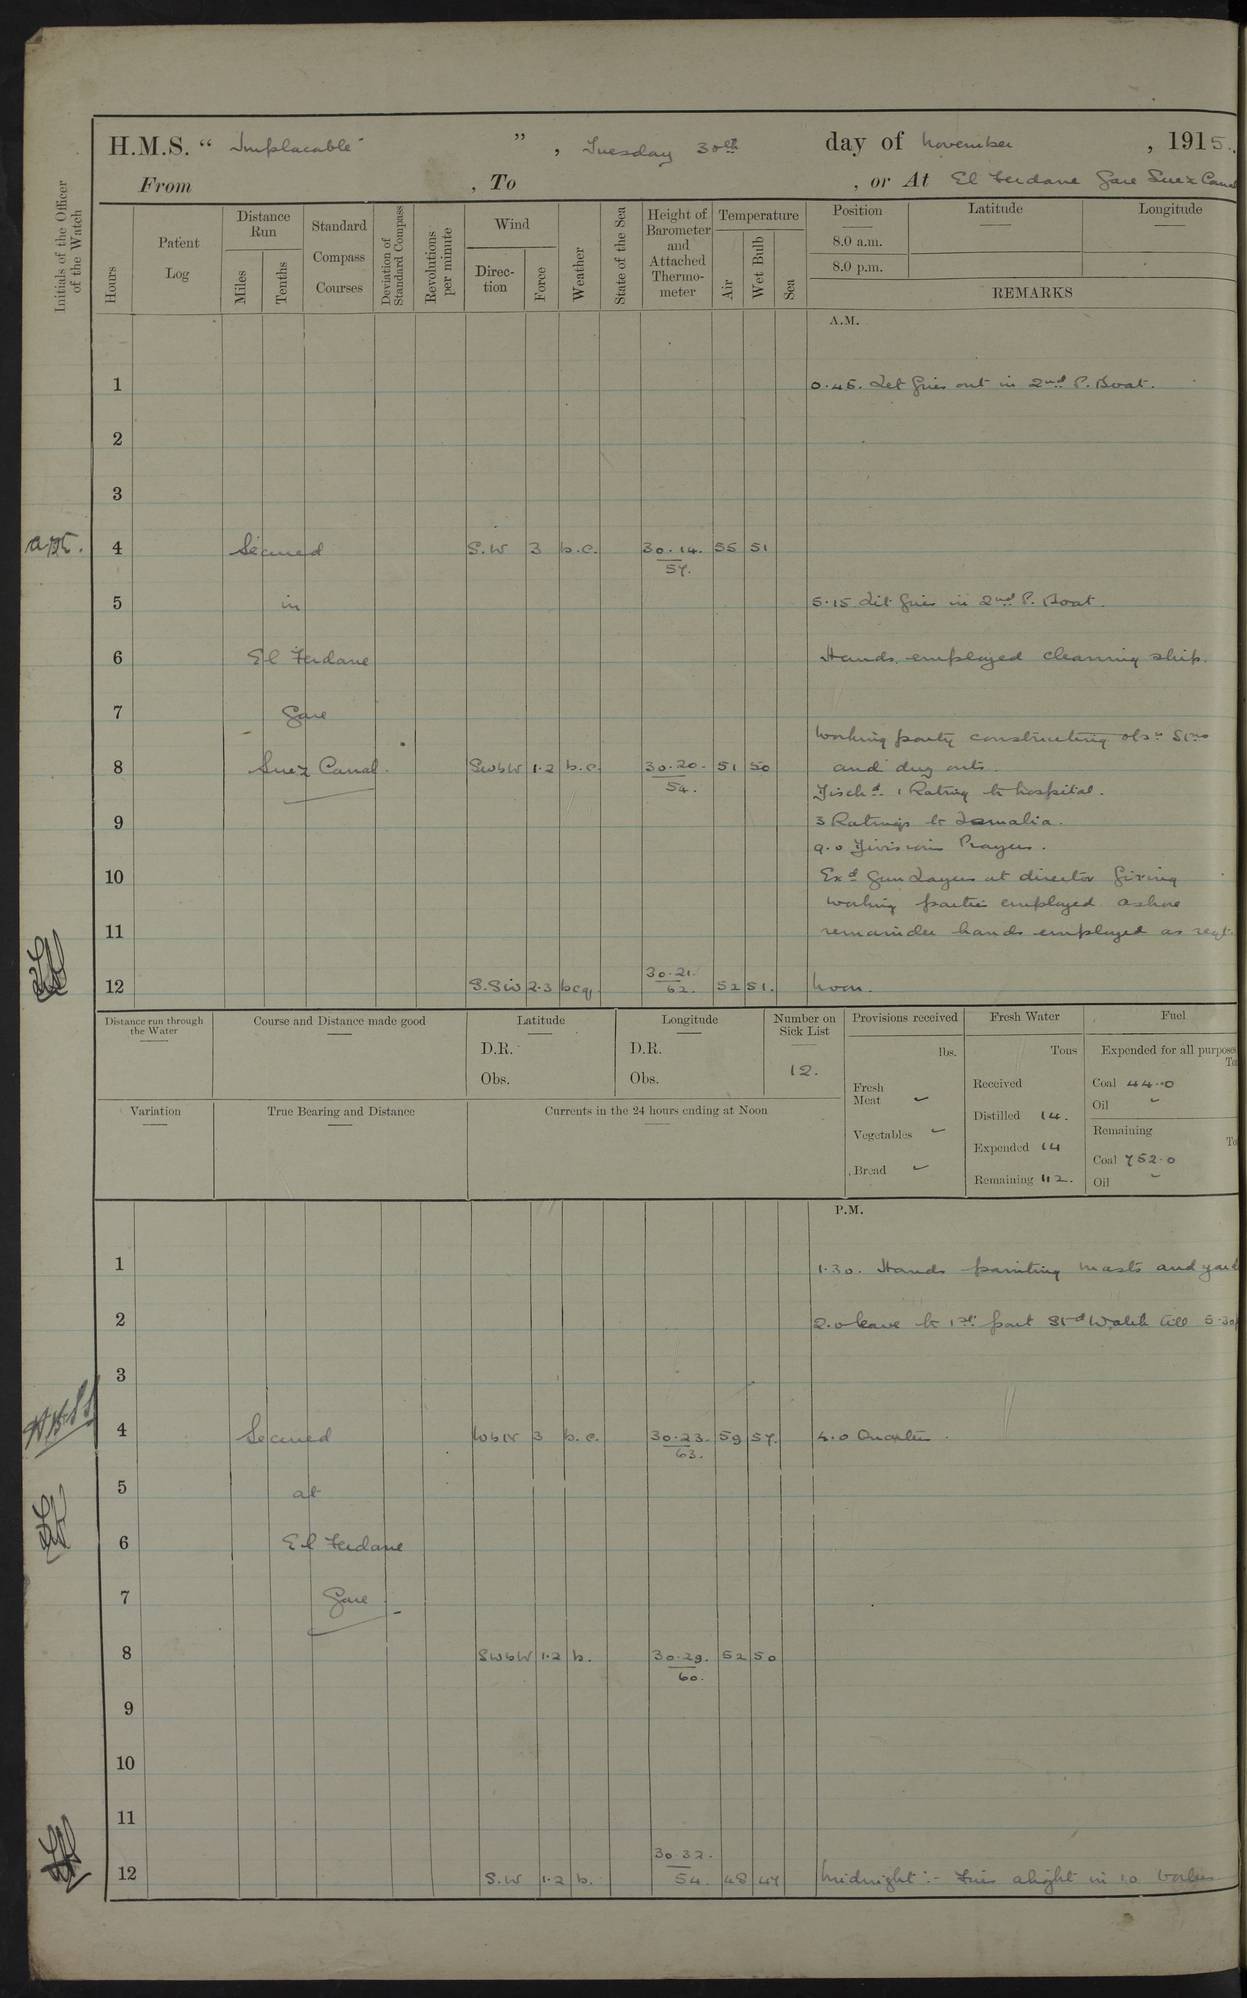 H.M.S. “ Implacable ” , Tuesday 30th day of November , 1915.
From , To , or At El Ferdane Gare Suez Canal
Initials of the Officer of the Watch
Hours
Patent Log
Distance Run
Miles
Tenths
Standard Compass Courses
Deviation of Standard Compass
Revolutions per minute
Wind
Direction
Force
Weather
State of the Sea
Height of Barometer and Attached Thermometer
Temperature
Air
Wet Bulb
Sea
Position Latitude Longitude
8.0 a.m.
8.0 p.m.
REMARKS
A.M.
1 0.45. Let fires out in 2nd P. Boat.
2
3
4 Secured S.W 3 b.c. 30.14. 55 51
57.
5 in 5.15 Lit fires in 2nd P. Boat.
6 El Ferdane Hands employed cleaning ship.
7 Gare
Working party constructing obsn Stns
8 Suez Canal. SWbW 1.2 b.c. 30.20. 51 50 and dug outs.
54. Disch'd 1 Rating to hospital.
9 3 Ratings to Ismalia.
9.0 Divisions Prayers.
10 Exd Gun Layers at director firing
working parties employed ashore
11 remainder hands employed as reqt.
12 S.SW 2.3 bcq. 30.21. 52 51. Noon.
62.
Distance run through the Water
Course and Distance made good
Latitude
D.R.
Obs.
Longitude
D.R.
Obs.
Number on Sick List
12.
Variation
True Bearing and Distance
Currents in the 24 hours ending at Noon
Provisions received
lbs.
Fresh Meat
Vegetables
Bread
Fresh Water
Tons
Received
Distilled 14.
Expended 14
Remaining 112.
Fuel
Expended for all purposes
Coal 44.0
Oil
Remaining
Coal 752.0
Oil
P.M.
1 1.30. Hands painting masts and yard
2 2.0 leave to 1st part Stbd Watch till 5.30
3
4 Secured WbN 3 b.c. 30.23. 59 57. 4.0 Quarters.
63.
5 at
6 El Ferdane
7 Gare
8 SWbW 1.2 b. 30.29. 52 50
60.
9
10
11
12 S.W 1.2 b. 30.32. 48 47 Midnight :- Fires alight in 10 boilers
54.